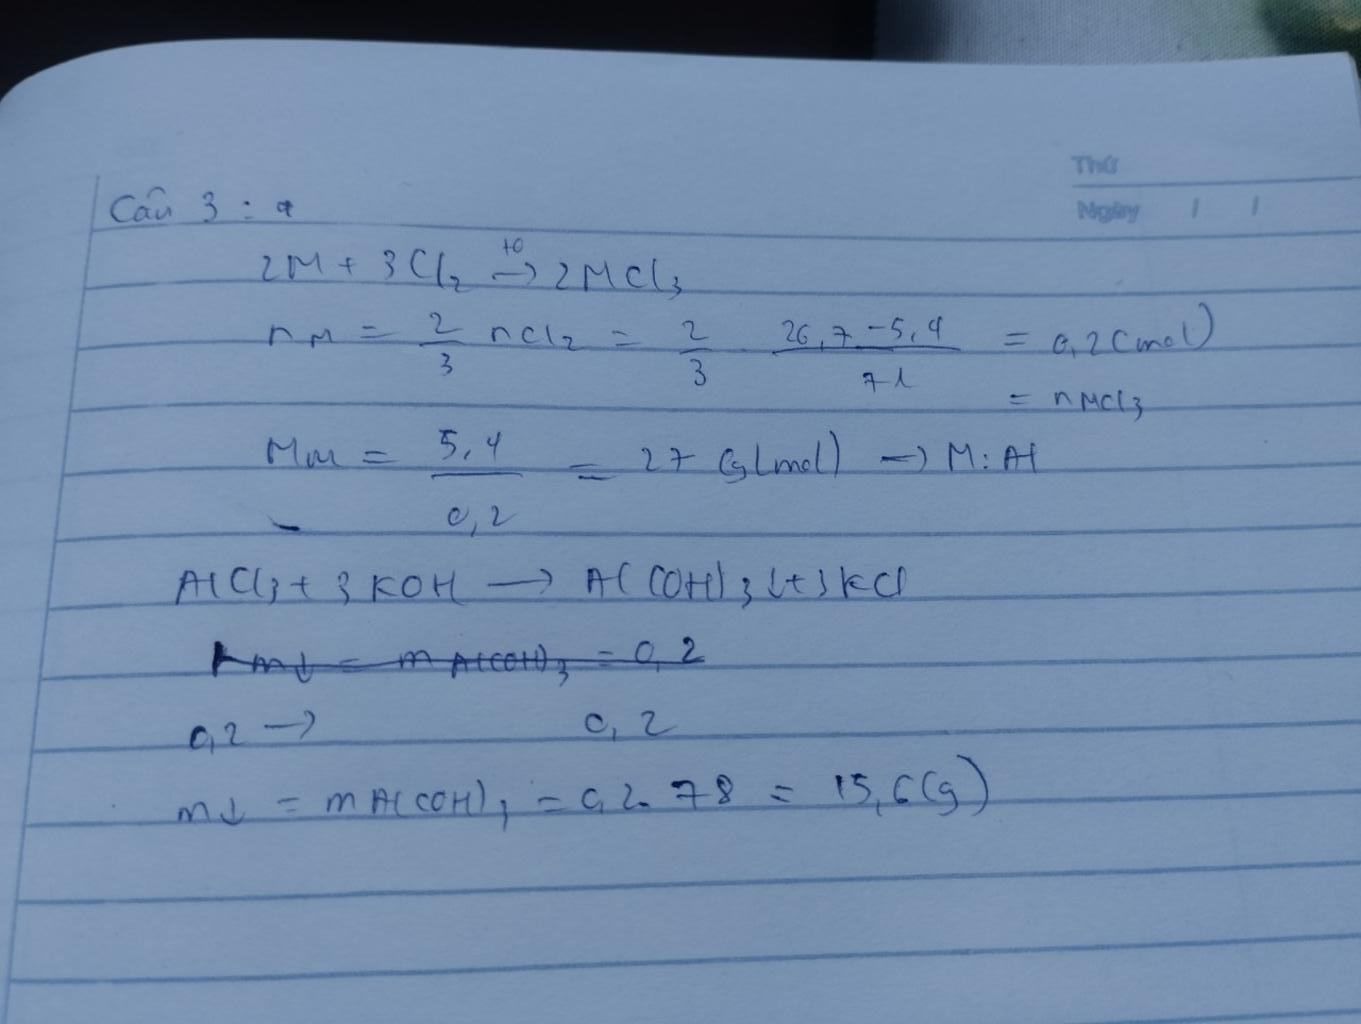 Thứ
Ngày / /
Câu 3 : a
2M + 3Cl₂ →(t⁰) 2MCl₃
nM = 2/3 nCl₂ = 2/3 . (26,7 - 5,4)/71 = 0,2 (mol)
= nMCl₃
MM = 5,4/0,2 = 27 (g/mol) → M: Al
AlCl₃ + 3KOH → Al(OH)₃↓ + 3KCl
m↓ = mAl(OH)₃ = 0,2
0,2 → 0,2
m↓ = mAl(OH)₃ = 0,2 . 78 = 15,6 (g)